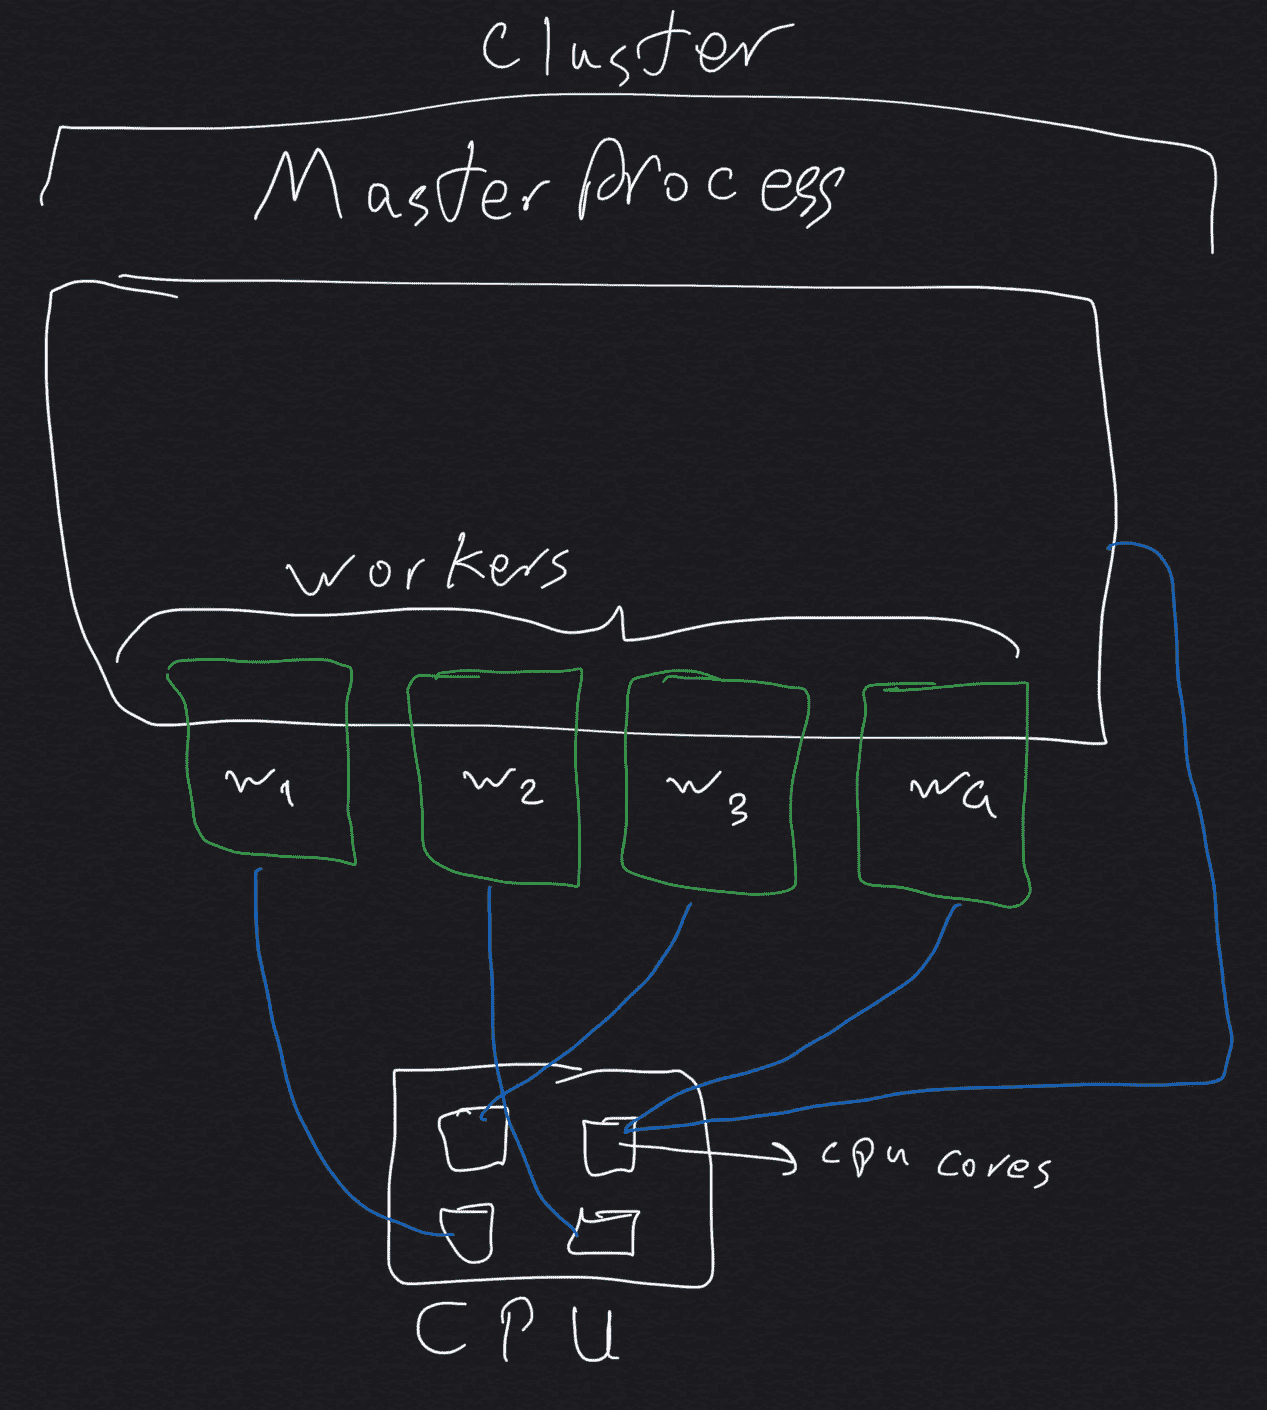 Cluster
Master Process
workers
w1
w2
w3
w4
cpu cores
CPU